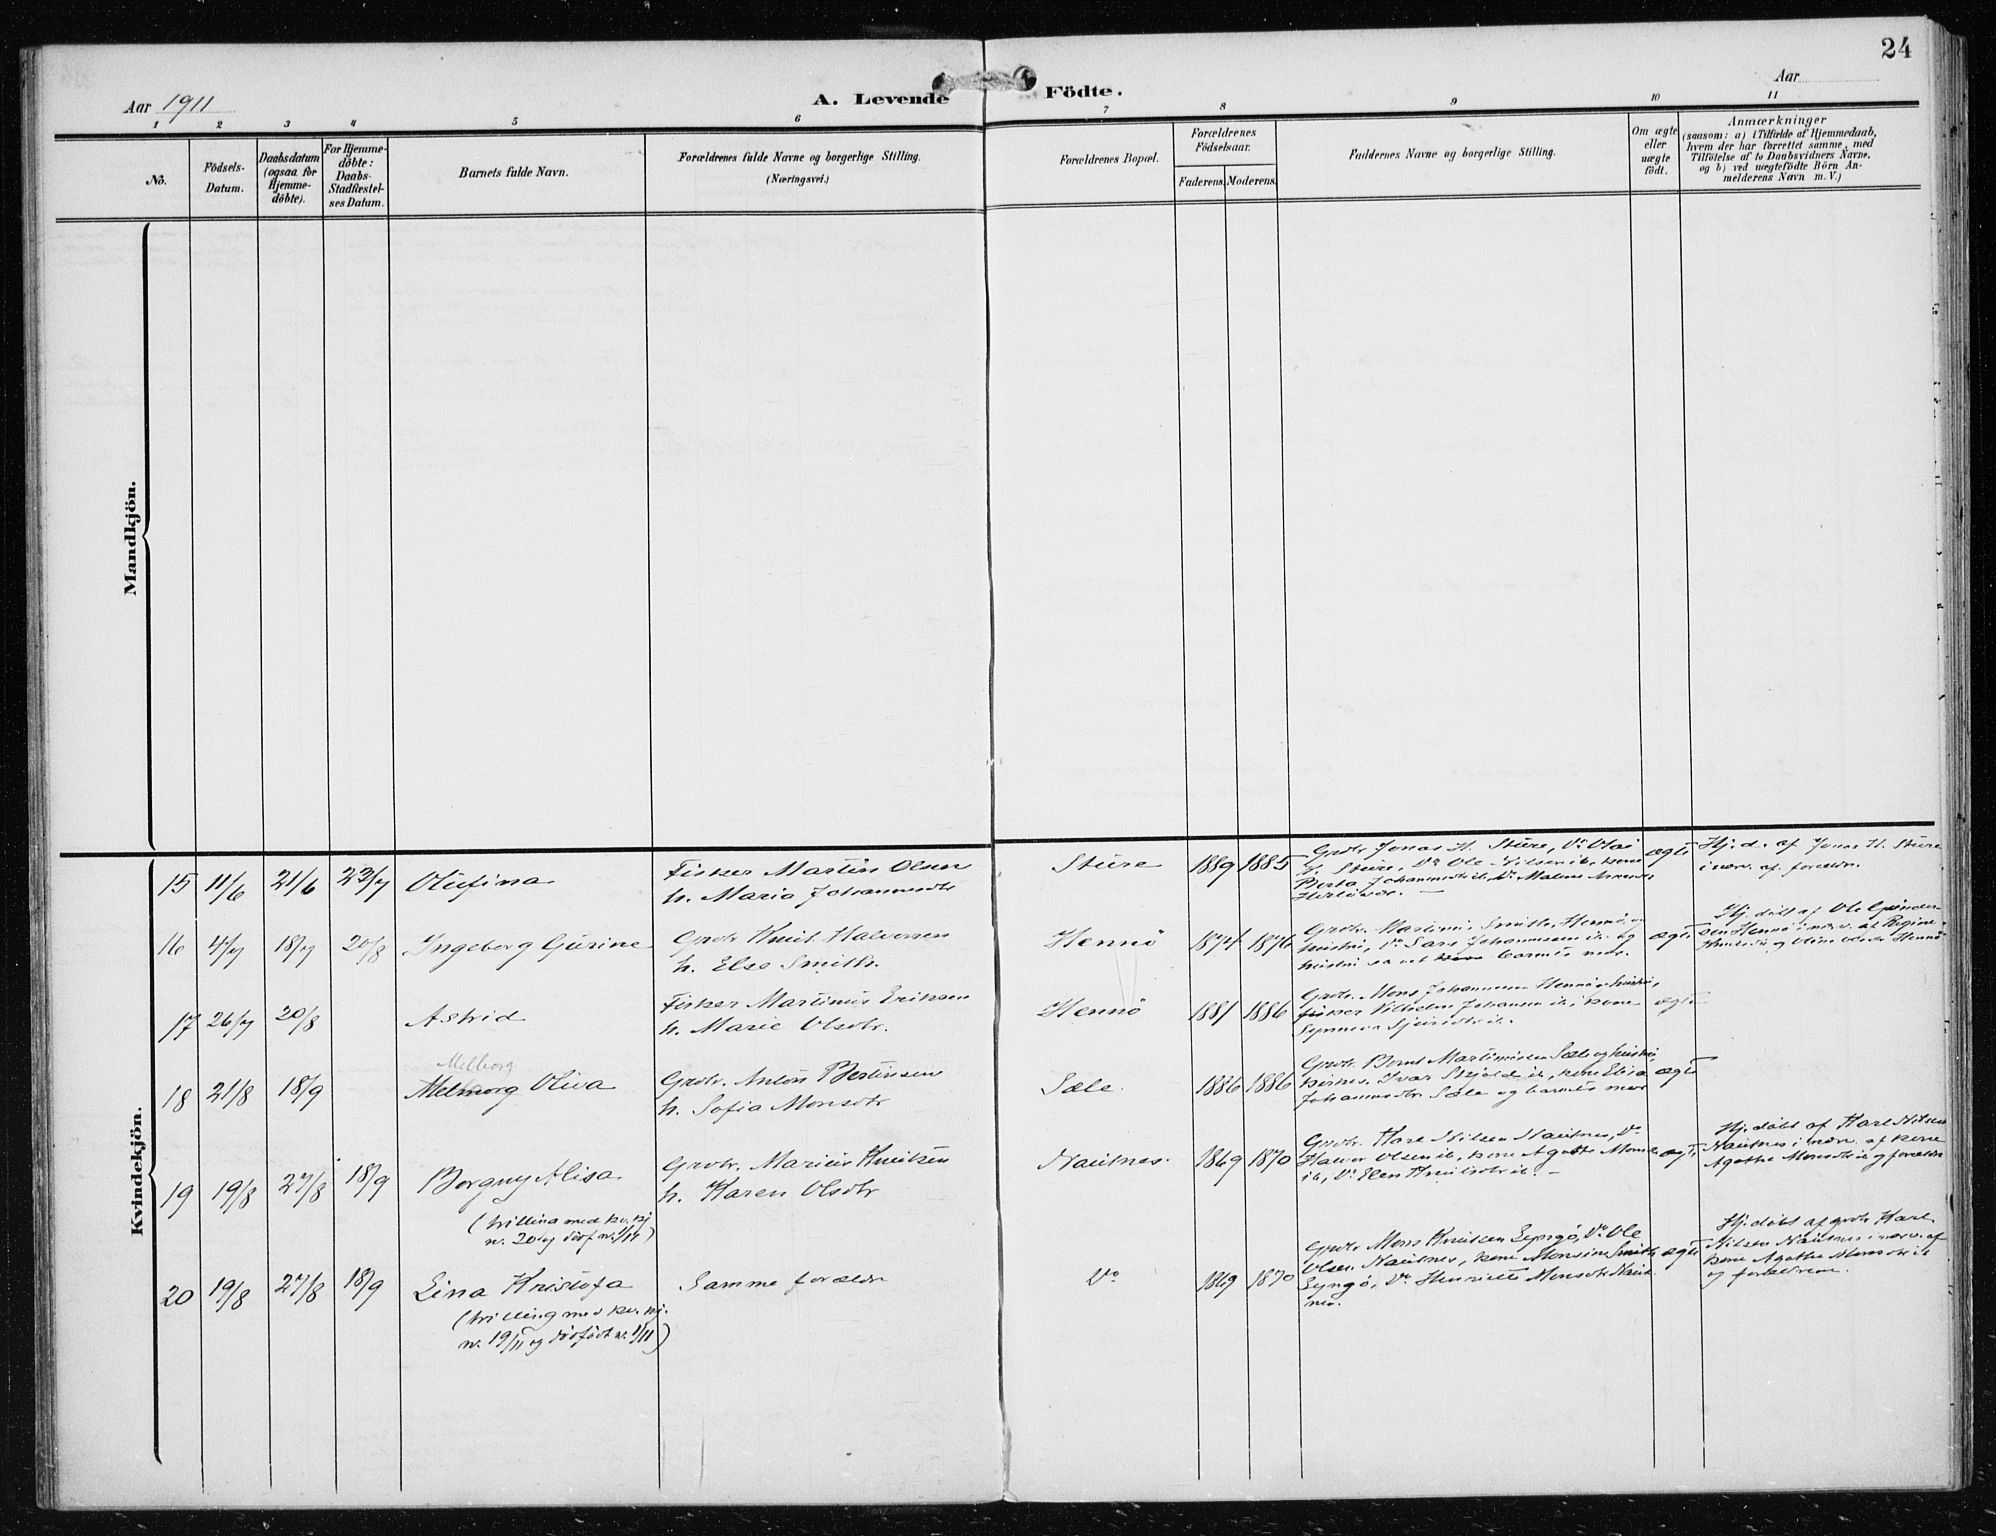 24
Aar 1911
A. Levende Födte.
Aar
1 2 3 4 5 6 7 8 9 10 11
No.
Födsels-
Datum.
Daabsdatum
(ogsaa for
Hjemme-
döbte).
For Hjemme-
döbte:
Daabs-
Stadfæstel-
ses Datum.
Barnets fulde Navn.
Forældrenes fulde Navne og borgerlige Stilling.
(Næringsvei.)
Forældrenes Bopæl.
Forældrenes
Födselsaar.
Faderens. Moderens.
Faddernes Navne og borgerlige Stilling.
Om ægte
eller
uægte
födt.
Anmærkninger
(saasom: a) i Tilfælde af Hjemmedaab,
hvem der har forrettet samme, med
Tilföielse af to Daabsvidners Navne,
og b) ved uægtefödte Börn An-
melderens Navn m. V.)
Mandkjön.
Kvindekjön.
15 11/6 21/6 23/7 Olufina
Fisker Martin Olsen
h. Maria Johannesdtr
Sture 1889 1885
Grdbr Jonas H. Sture, Do Olai
Sture, Do Ole Nilsen ib, kone
Berta Johannesdtr ib, Do Malene
Herløvær. —
ægte
Hj.d. af Jonas H. Sture
i nærv. af forældr.
16 4/7 18/7 20/8 Ingeborg Gurine
Grdbr Knut Halvorsen
h. Else Smith.
Hennö 1874 1876
Grdbr. Martinus Smith, Hennö og
hustru, Do Lars Johannessen ib. og
hustru samt barnets mor.
ægte
Hj. döbt af Ole
sen Hennö i nærv. af
Hennö
17 26/7 20/8 Astrid
Fisker Martinus Eriksen
h. Marie Olsdtr.
Hennö 1881 1886
Grdbr. Mons Johannessen Hennö og hustru,
fisker Vilhelm Johansen ib, kone
Synneva Sjursdtr ib.
ægte
Melborg
18 21/8 18/9 Melmorg Oliva
Grdbr. Anton Bertinsen
h. Sofia Monsdtr
Sæle. 1886 1886
Grdbr. Bernt Martinussen Sæle og hustru,
fisker Ivar Skjold ib, kone Elisa
Johannesdtr Sæle og barnets mor
ægte
19 19/8 27/8 18/9 Borgny Alisa
(trilling med kv. kj
nr. 20 og dödf nr. 1/11)
Grdbr. Marius Knutsen
h. Karen Olsdtr
Nautnes. 1869 1870
Grdbr. Karl Nilsen Nautnes, Do
Halvor Olsen ib, kone Agathe Monsdtr
ib, Do Elen Knutsdtr ib. —
ægte
Hj. döbt af Karl Nilsen
Nautnes i nærv. af kone
Agathe Monsdtr ib og forældr
20 19/8 27/8 18/9 Lina Kristofa
(trilling med kv. kj.
nr. 19/11 og dödfödt nr. 1/11)
Samme forældr
Do 1869 1870
Grdbr Mons Knutsen Lyngö, Do Ole
Olsen Nautnes, kone Monsine Smith
Lyngö, Do Henriette Monsdtr Naut-
nes.
ægte
Hj. döbt af grdbr Karl
Nilsen Nautnes i nærv. af
kone Agathe Monsdtr ib
og forældrene.